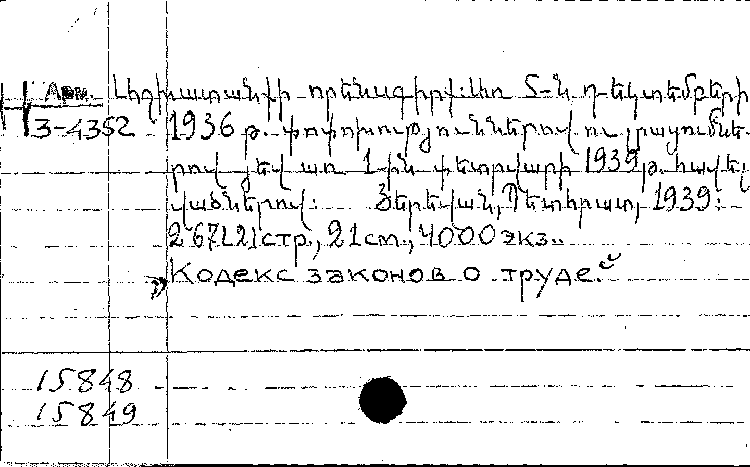 Арм. Աշխատանքի որենսգիրք: առ 5-ն դեկտեմբերի
3-4352 1936 թ. փոփոխություններով ու լրացումնե-
րով յեվ առ 1-ին փետրվարի 1939 թ. հավել
վածներով: Յերեվան, Պետհրատ, 1939:
267[2] стр., 21 см., 4000 экз..
Кодекс законов о труде.
15848
15849